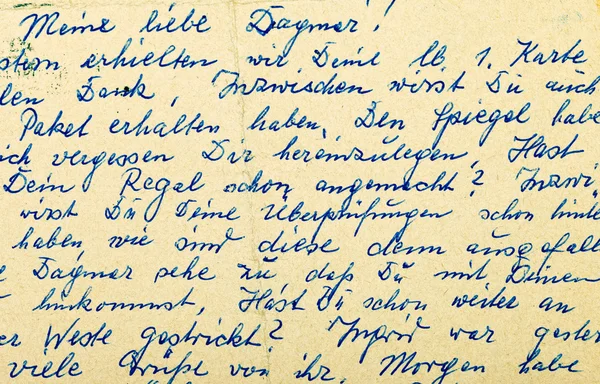 Meine liebe Dagmar!
stern erhielten wir Deine lb 1. Karte
len Dank, Inzwischen wirst Du auch
Paket erhalten haben, Den Spiegel habe
ich vergessen Dir hereinzulegen, Hast
Dein Regal schon angemacht? Inzwi
wirst Du Deine Überprüfungen schon hinte
haben, wie sind diese denn ausgefall
e Dagmar sehe zu daß Du mit Deinen
hinkommst, Hast Du schon weiter an
er Weste gestrickt? Ingrid war gester
viele Grüße von ihr, Morgen habe